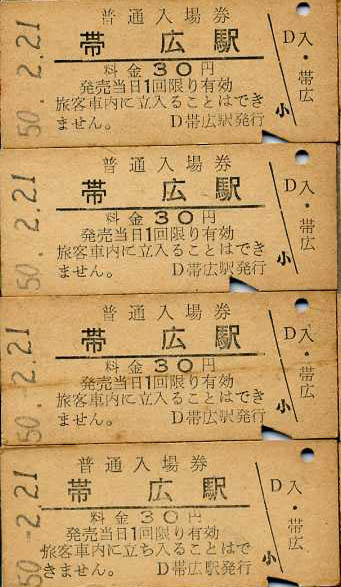 50.2.21
普通入場券
帯広駅
料金30円
発売当日1回限り有効
旅客車内に立入ることはでき
ません。 D帯広駅発行
D入・帯広
小
50.2.21
普通入場券
帯広駅
料金30円
発売当日1回限り有効
旅客車内に立入ることはでき
ません。 D帯広駅発行
D入・帯広
小
50.2.21
普通入場券
帯広駅
料金30円
発売当日1回限り有効
旅客車内に立入ることはでき
ません。 D帯広駅発行
D入・帯広
小
50.2.21
普通入場券
帯広駅
料金30円
発売当日1回限り有効
旅客車内に立ち入ることはで
きません。 D帯広駅発行
D入・帯広
小